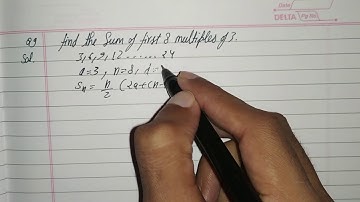 DELTA Pg No.
Q9 find the Sum of first 8 multiples of 3.
Sol. 3,6,9,12 ........ 24
a=3, n=8, d=
Sn = n/2 (2a+(n-